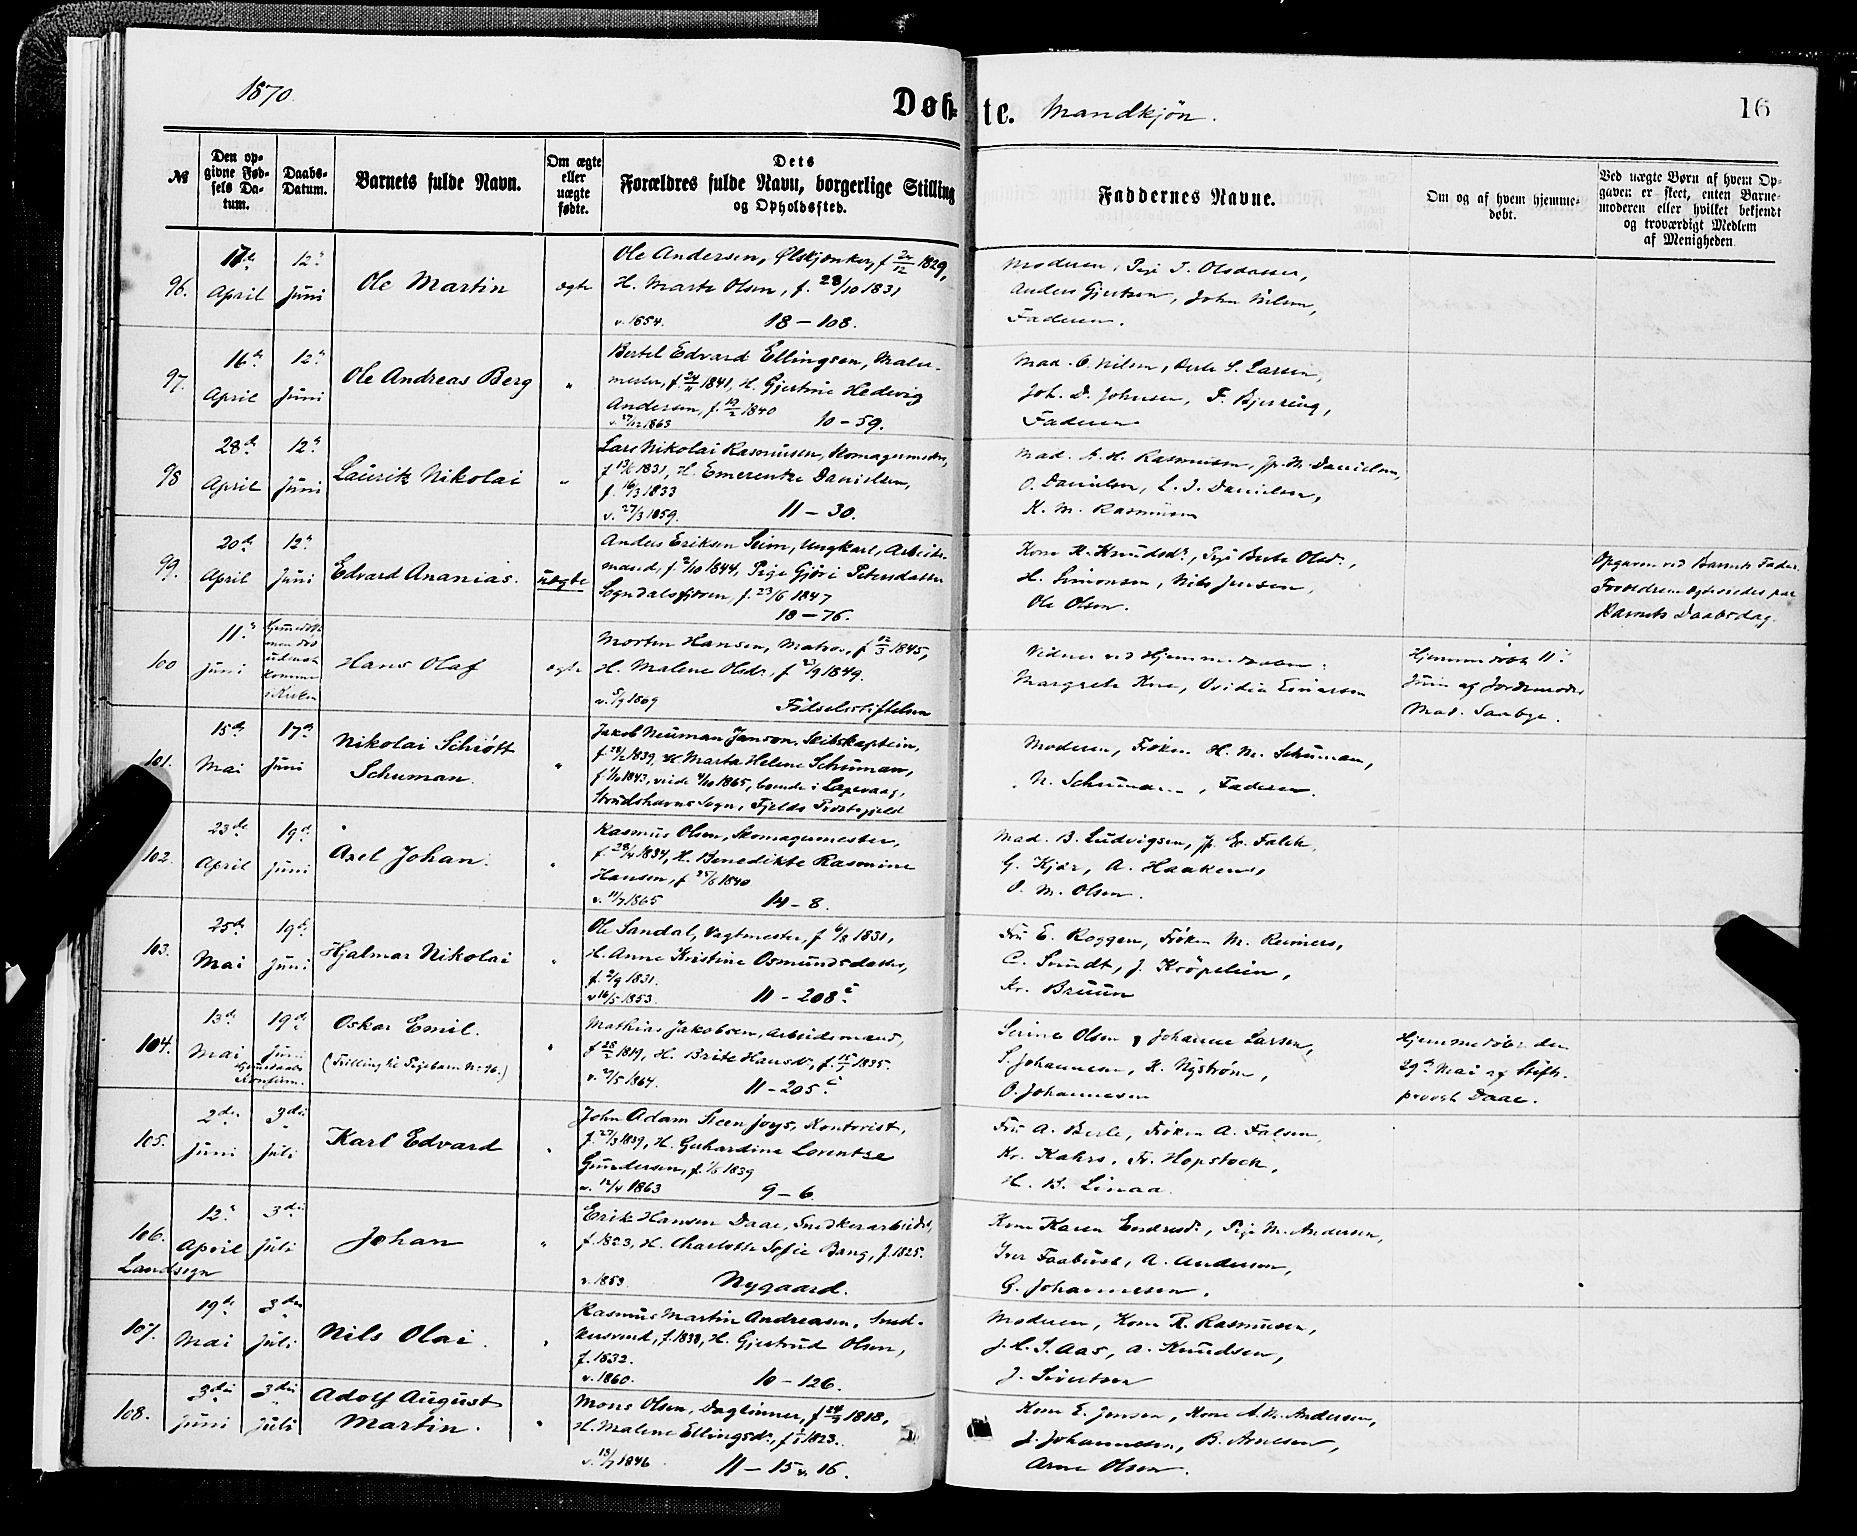 1870.
Døb-
te. Mandkjøn.
16
№
Den op-
givne Fød-
sels Da-
tum.
Daabs-
Datum.
Barnets fulde Navn.
Om ægte
eller
uægte
fødte.
Dets
Forældres fulde Navn, borgerlige Stilling
og Opholdssted.
Faddernes Navne.
Om og af hvem hjemme-
døbt.
Ved uægte Børn af hvem Op-
gaven er skeet, enten Barne-
moderen eller hvilket bekjendt
og troværdigt Medlem
af Menigheden.
96.
April
12te
Juni
Ole Martin
ægte
Ole Andersen, Ølskjænker, f. 24/12 1829,
H. Marte Olsen, f. 28/10 1831
v. 1854. 18 – 108.
Moderen, Pige I. Olsdatter,
Anders Gjertsen, John Nilsen,
Faderen.
97.
16de
April
12te
Juni
Ole Andreas Berg
"
Bertel Edvard Ellingsen, Maler-
mester, f. 1841, H. Gjertine Hedevig
Andersen, f. 1840
1863 10 – 59.
Mad. O. Nilsen, L. Larsen,
Joh. D. Johnsen, F. Bjerring,
Faderen
98
28de
April
12te
Juni
Lauritz Nikolai
"
Lars Nikolai Rasmusen, Skomagermester,
f. 1831, H. Emerentze Danielsen,
f. 16/3 1833
v. 27/3 1859. 11 – 30.
Mad. A. H. Rasmusen, Jp. M. Danielsen,
O. Danielsen, L. J. Danielsen,
K. M. Rasmusen
99.
20de
April
12te
Juni
Edvard Ananias.
uægte
Anders Eriksen Seim, Ungkarl, Arbeids-
mand, f. 1844, Pige Gjøri Petersdatter
Sogndalsfjøren, f. 23/6 1847
18 – 76.
Kone K. Knudsdr., Pige Berte Olsdr.,
H. Simonsen, Nils Jensen,
Ole Olsen.
Opgaven ved Barnets Fader.
Forældrene ægteviedes paa
Barnets Daabsdag.
100
11te
Juni
Hjemmedøbt
men død
uden at
komme
i Kirken
Hans Olaf
ægte
Morten Hansen, Matros, f. 12/3 1845,
H. Malene Olsdr., f. 1849.
v. 1869 Fødselsstiftelsen
Vidner ved Hjemmedaaben:
Margrete Kne, Ovidia Einarsen
Hjemmedøbt 11te
Juni af Jordemoder
Mad. Saabye.
101.
15de
Mai
17de
Juni
Nikolai Schrøtt
Schuman.
"
Jakob Neuman Janson, Skibskaptein,
f. 1839, H. Marta Helene Schuman,
f. 1843, viede 1865, boende i Laxevaag,
Strudshavns Sogn, Fjelds Præstegjeld
Moderen, Frøken H. M. Schuman,
N. Schuman, Faderen.
102.
23de
April
19de
Juni
Axel Johan.
"
Rasmus Olsen, Skomagermester,
f. 28/4 1834, H. Benedikte Rasmine
Hansen, f. 25/6 1840
v. 11/7 1865 14 – 8.
Mad. B. Ludvigsen, Jp. E. Falck,
G. Kjær, A. Haakens,
O. M. Olsen.
103.
25de
Mai
19de
Juni
Hjalmar Nikolai
"
Ole Sandal, Vagtmester, f. 6/8 1831,
H. Anne Kristine Osmundsdatter,
f. 2/9 1831.
v. 16/5 1853. 11 – 208c.
Fru E. Roggen, Frøken M. Reimers,
C. Sundt, J. Krøpelien,
Kr. Bruun
104.
13de
Mai
19de
Juni
Hjemmedaab
Konfirm.
Oskar Emil.
(Tvilling til Pigebarn No. 96.)
"
Mathias Jakobsen, Arbeidsmand,
f. 1819, H. Brite Hansdr., f. 1835.
v. 1864. 11 – 205c
Serine Olsen, Johanne Larsen,
S. Johannesen, K. Nystrøm,
O. Johannesen
Hjemmedøbt den
29de Mai af Stifts-
provst Daae.
105.
2den
Juni
3die
Juli
Karl Edvard
"
John Adam Steen Joys, Kontorist,
f. 27/3 1839, H. Gerhardine Lorentze
Gundersen, f. 1839
v. 12/4 1863 9 – 6.
Fru A. Berle, Frøken A. Falsen,
Kr. Kahrs, Fr. Hopstock,
H. B. Linaa.
106.
Landsogn
12te
April
3die
Juli
Johan
"
Erik Hansen Daae, Snedkerarbeider,
f. 1823, H. Charlotte Sofie Bang, f. 1825.
v. 1853. Nygaard.
Kone Karen Endresdr., Pige M. Andersen,
Iver Faabust, A. Andersen,
G. Johannesen.
107.
19de
Mai
3die
Juli
Nils Olai.
"
Rasmus Martin Andreasen, Sned-
kersvend, f. 1838, H. Gjertrud Olsen,
f. 1832.
v. 1860. 10 – 126.
Moderen, Kone R. Rasmusen,
J. C. S. Aas, A. Knudsen,
J. Sivertsen
108.
3die
Juni
3die
Juli
Adolf August
Martin.
"
Mons Olsen, Daglønner, f. 1818,
H. Malene Ellingsdr., f. 1823.
v. 13/7 1846 11 – 15 v. 16.
Kone E. Jensen, Kone A. M. Andersen,
J. Johannesen, B. Arnesen,
Arne Olsen.